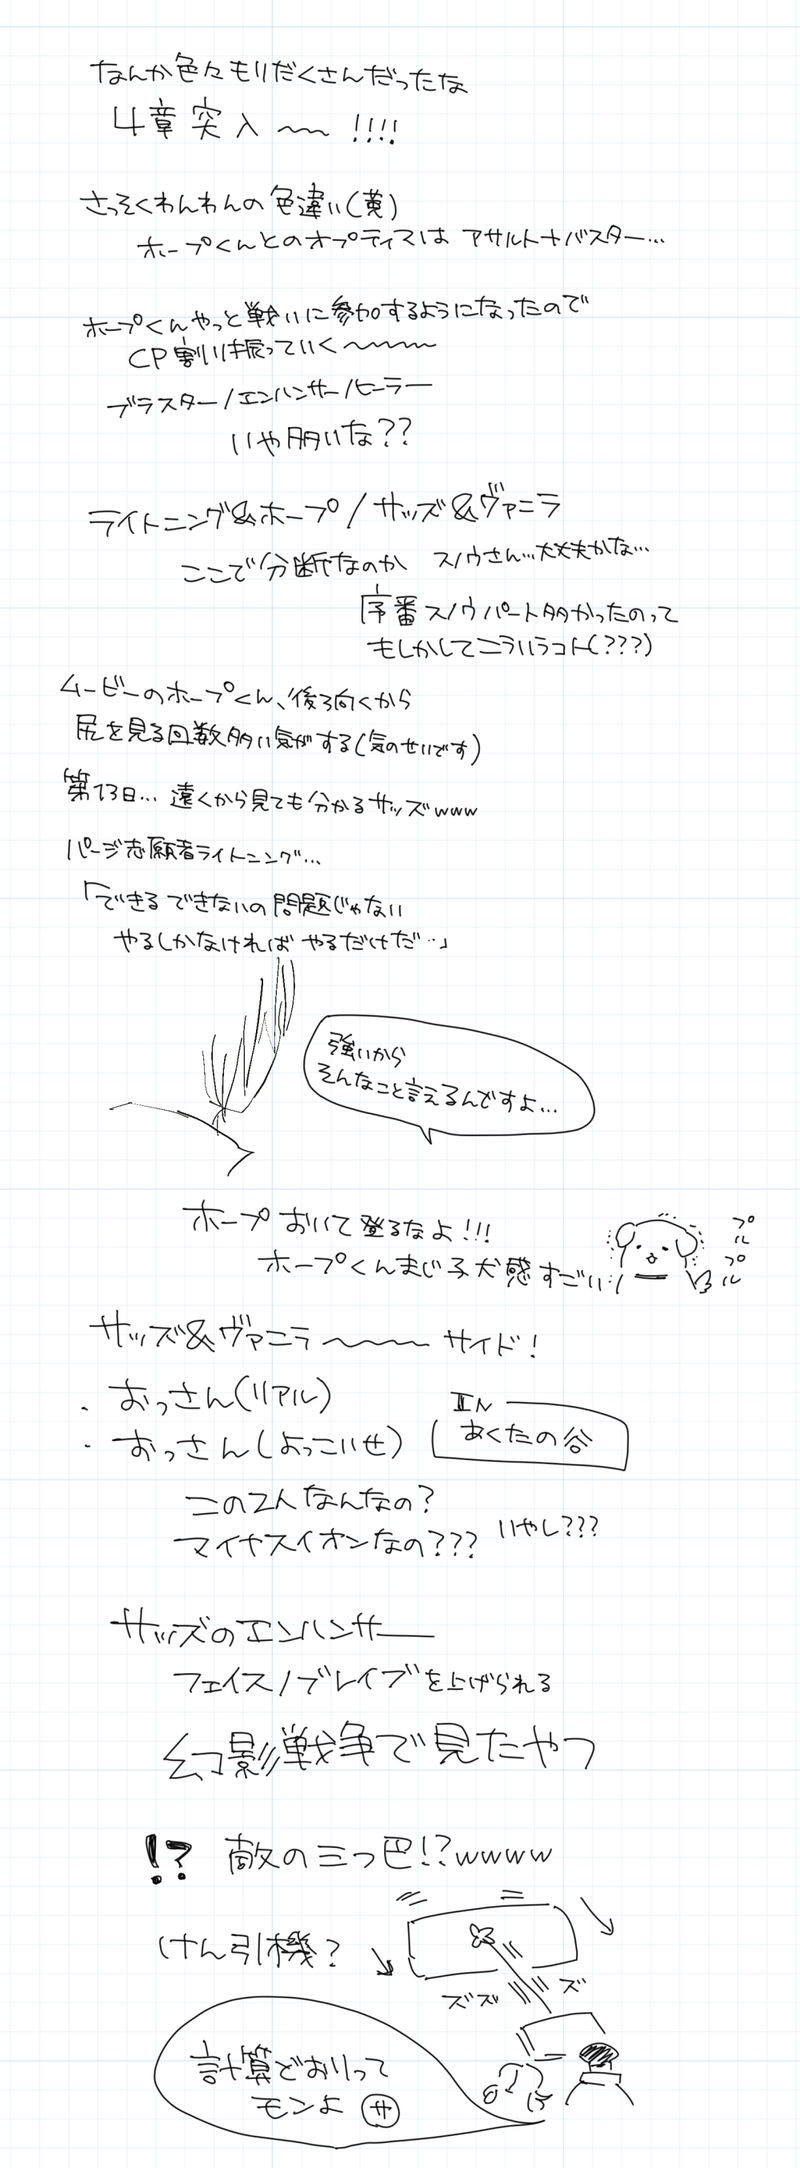 なんか色々もりだくさんだったな
4章突入〜〜!!!!
さっそくわんわんの色違い(黄)
ホープくんとのオプティマは アサルト+バスター…
ホープくんやっと戦いに参加するようになったので
CP割り振っていく〜〜〜〜
ブラスター/エンハンサー/ヒーラー
いや多いな??
ライトニング&ホープ/サッズ&ヴァニラ
ここで分断なのか スノウさん…大丈夫かな…
序番スノウパート多かったのって
もしかしてこういうコト(???)
ムービーのホープくん、後ろ向くから
尻を見る回数多い気がする(気のせいです)
第13日… 遠くから見ても分かるサッズwww
パージ志願者ライトニング…
「できるできないの問題じゃない
やるしかなければ やるだけだ…」
強いから
そんなこと言えるんですよ…
ホープおいて登るなよ!!!
ホープくんまじ子犬感すごい:(
プルプル
サッズ&ヴァニラ〜〜〜〜サイド!
・おっさん(リアル)
・おっさん(よっこいせ)
IN
あくたの谷
この2人なんなの?
マイナスイオンなの??? いやし???
サッズのエンハンサー
フェイス/ブレイブを上げられる
幻影戦争で見たやつ
!? 敵の三つ巴!?wwww
けん引機?
ズズ
ズ
計算どおりって
モンよ サ